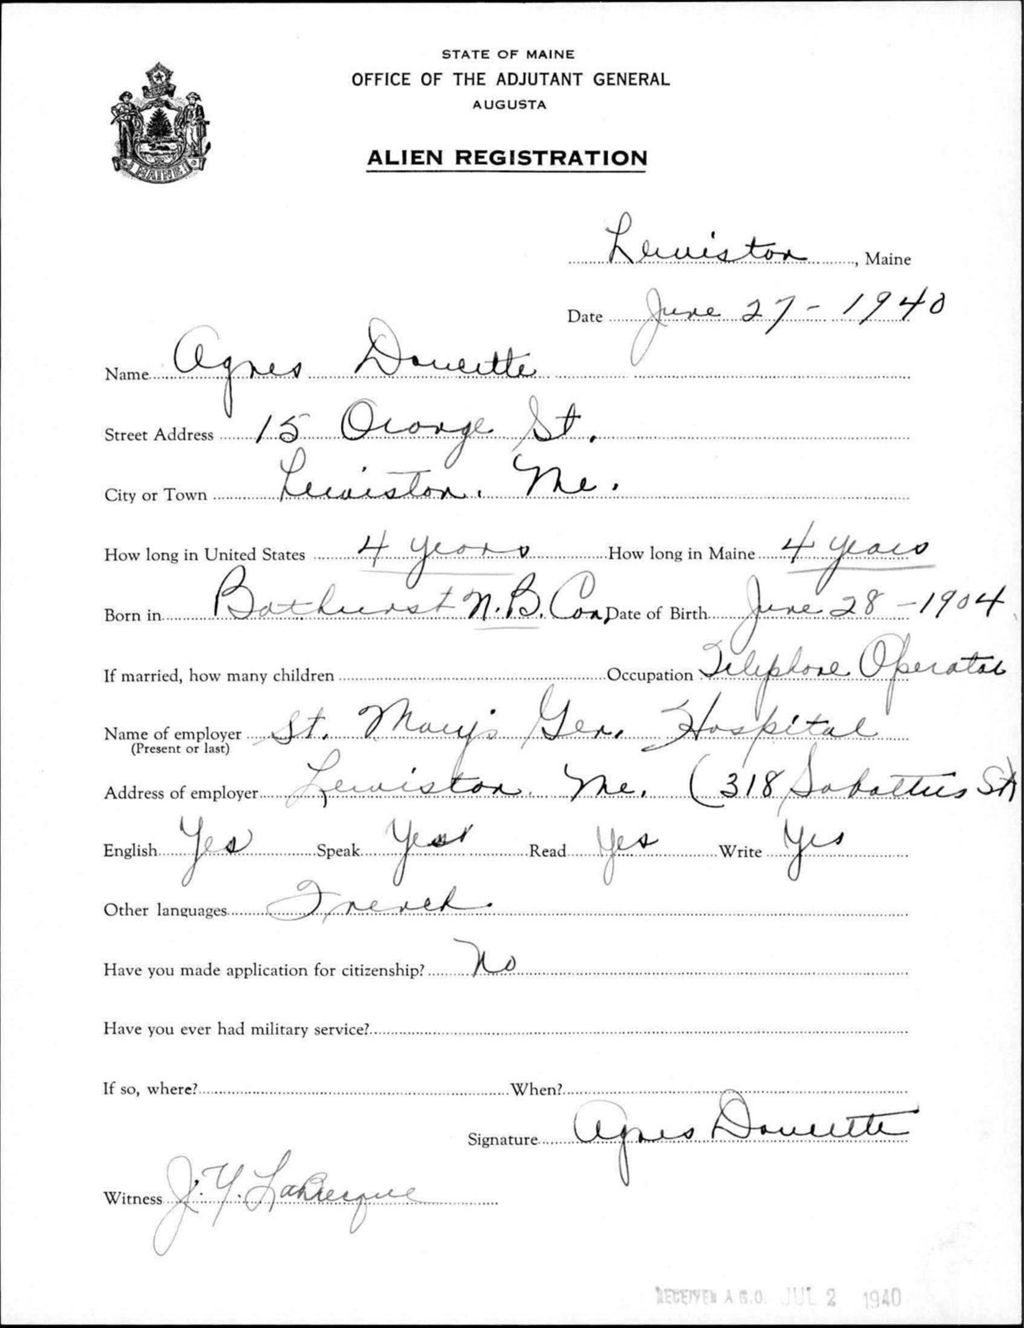 STATE OF MAINE
OFFICE OF THE ADJUTANT GENERAL
AUGUSTA
ALIEN REGISTRATION
MAINE
Lewiston, Maine
Date June 27 - 1940
Name Agnes Doucette
Street Address 15 Orange St.
City or Town Lewiston. Me.
How long in United States 4 years How long in Maine 4 years
Born in Bathurst N.B. Can Date of Birth June 28 - 1904
If married, how many children Occupation Telephone Operator
Name of employer St. Mary's Gen. Hospital
(Present or last)
Address of employer Lewiston. Me. (318 Sabattus St)
English Yes Speak Yes Read Yes Write Yes
Other languages French.
Have you made application for citizenship? No
Have you ever had military service?
If so, where? When?
Signature Agnes Doucette
Witness J. Y. LaBrecque
RECEIVED A.G.O. JUL 2 1940